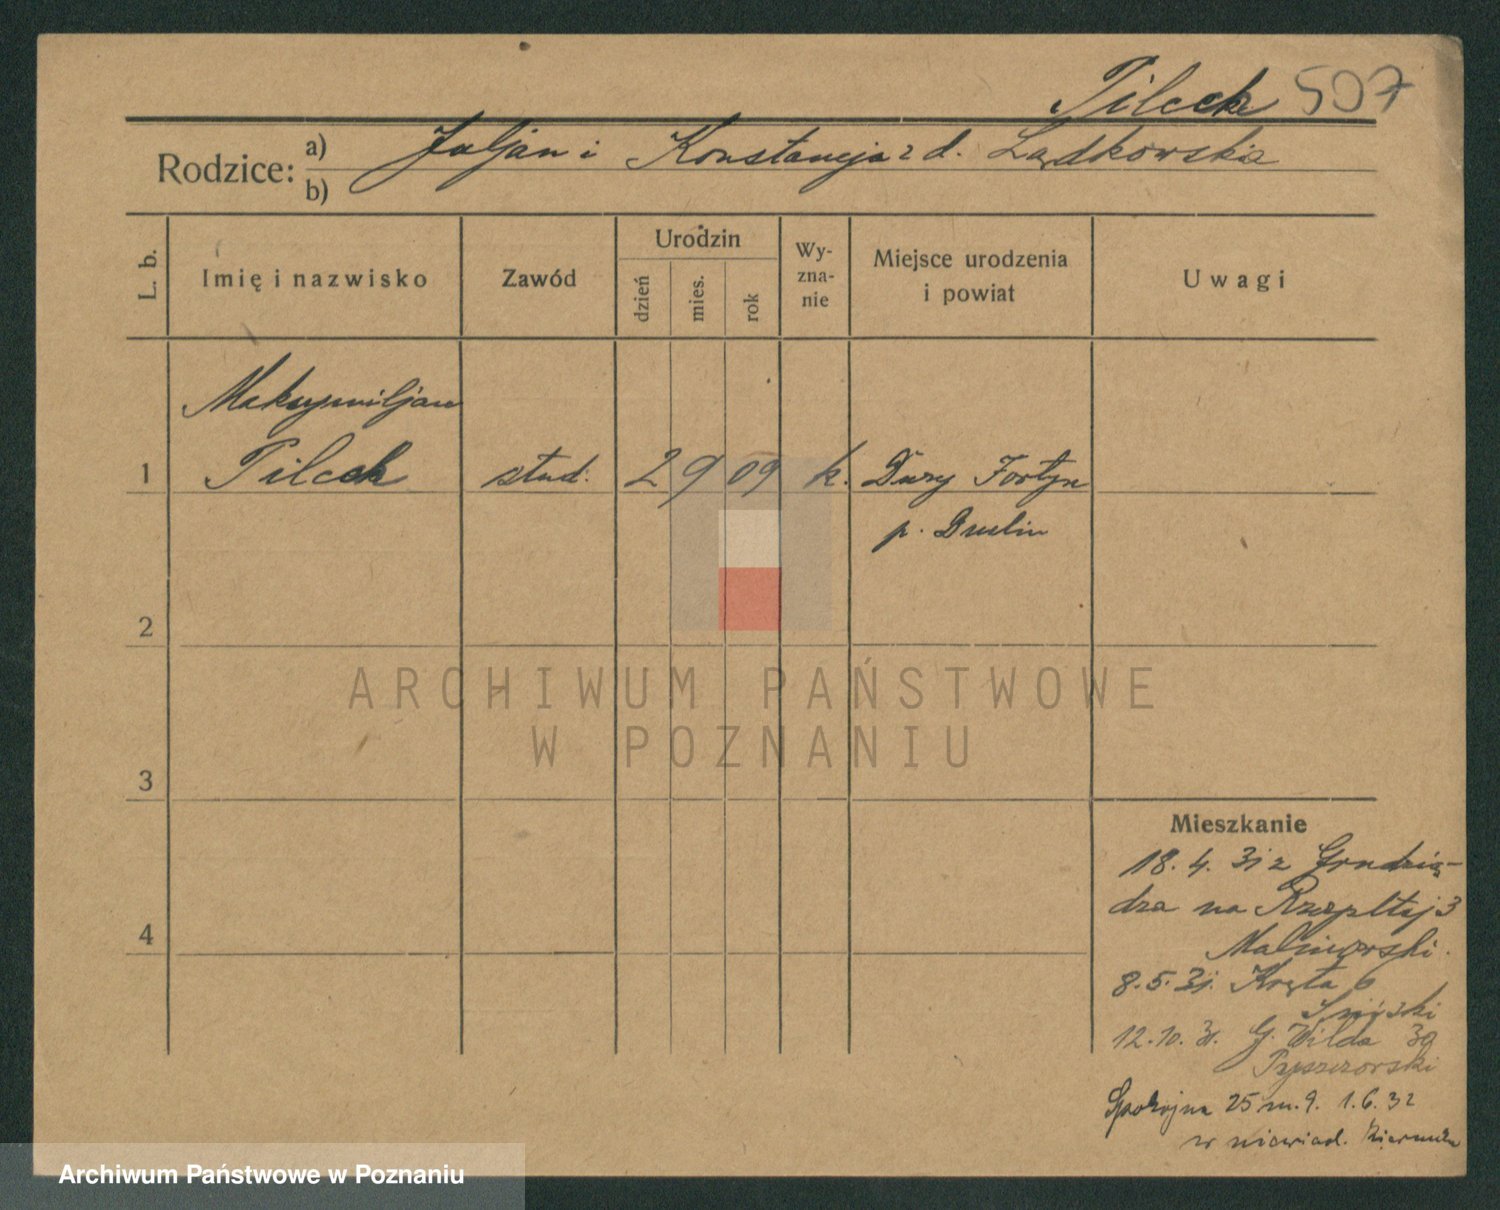 Pilcek 507
Rodzice: a) Juljan i Konstancja z d. Lądkowska
b)
L. b.
Imię i nazwisko
Zawód
Urodzin
dzień
mies.
rok
Wy-
zna-
nie
Miejsce urodzenia
i powiat
Uwagi
Maksymiljan
1 Pilcek stud. 2 9 09 k. Dury
p.
2
ARCHIWUM PAŃSTWOWE
W POZNANIU
3
Mieszkanie
18. 4. 31 z Grudzią-
dza na Rzepltej 3
4
Malinowski.
8. 5. 31. Kręta 6
12. 10. 31. G. Wilda 39
Spokojna 25 m. 9. 1. 6. 32
w niewiad. kierunku
Archiwum Państwowe w Poznaniu